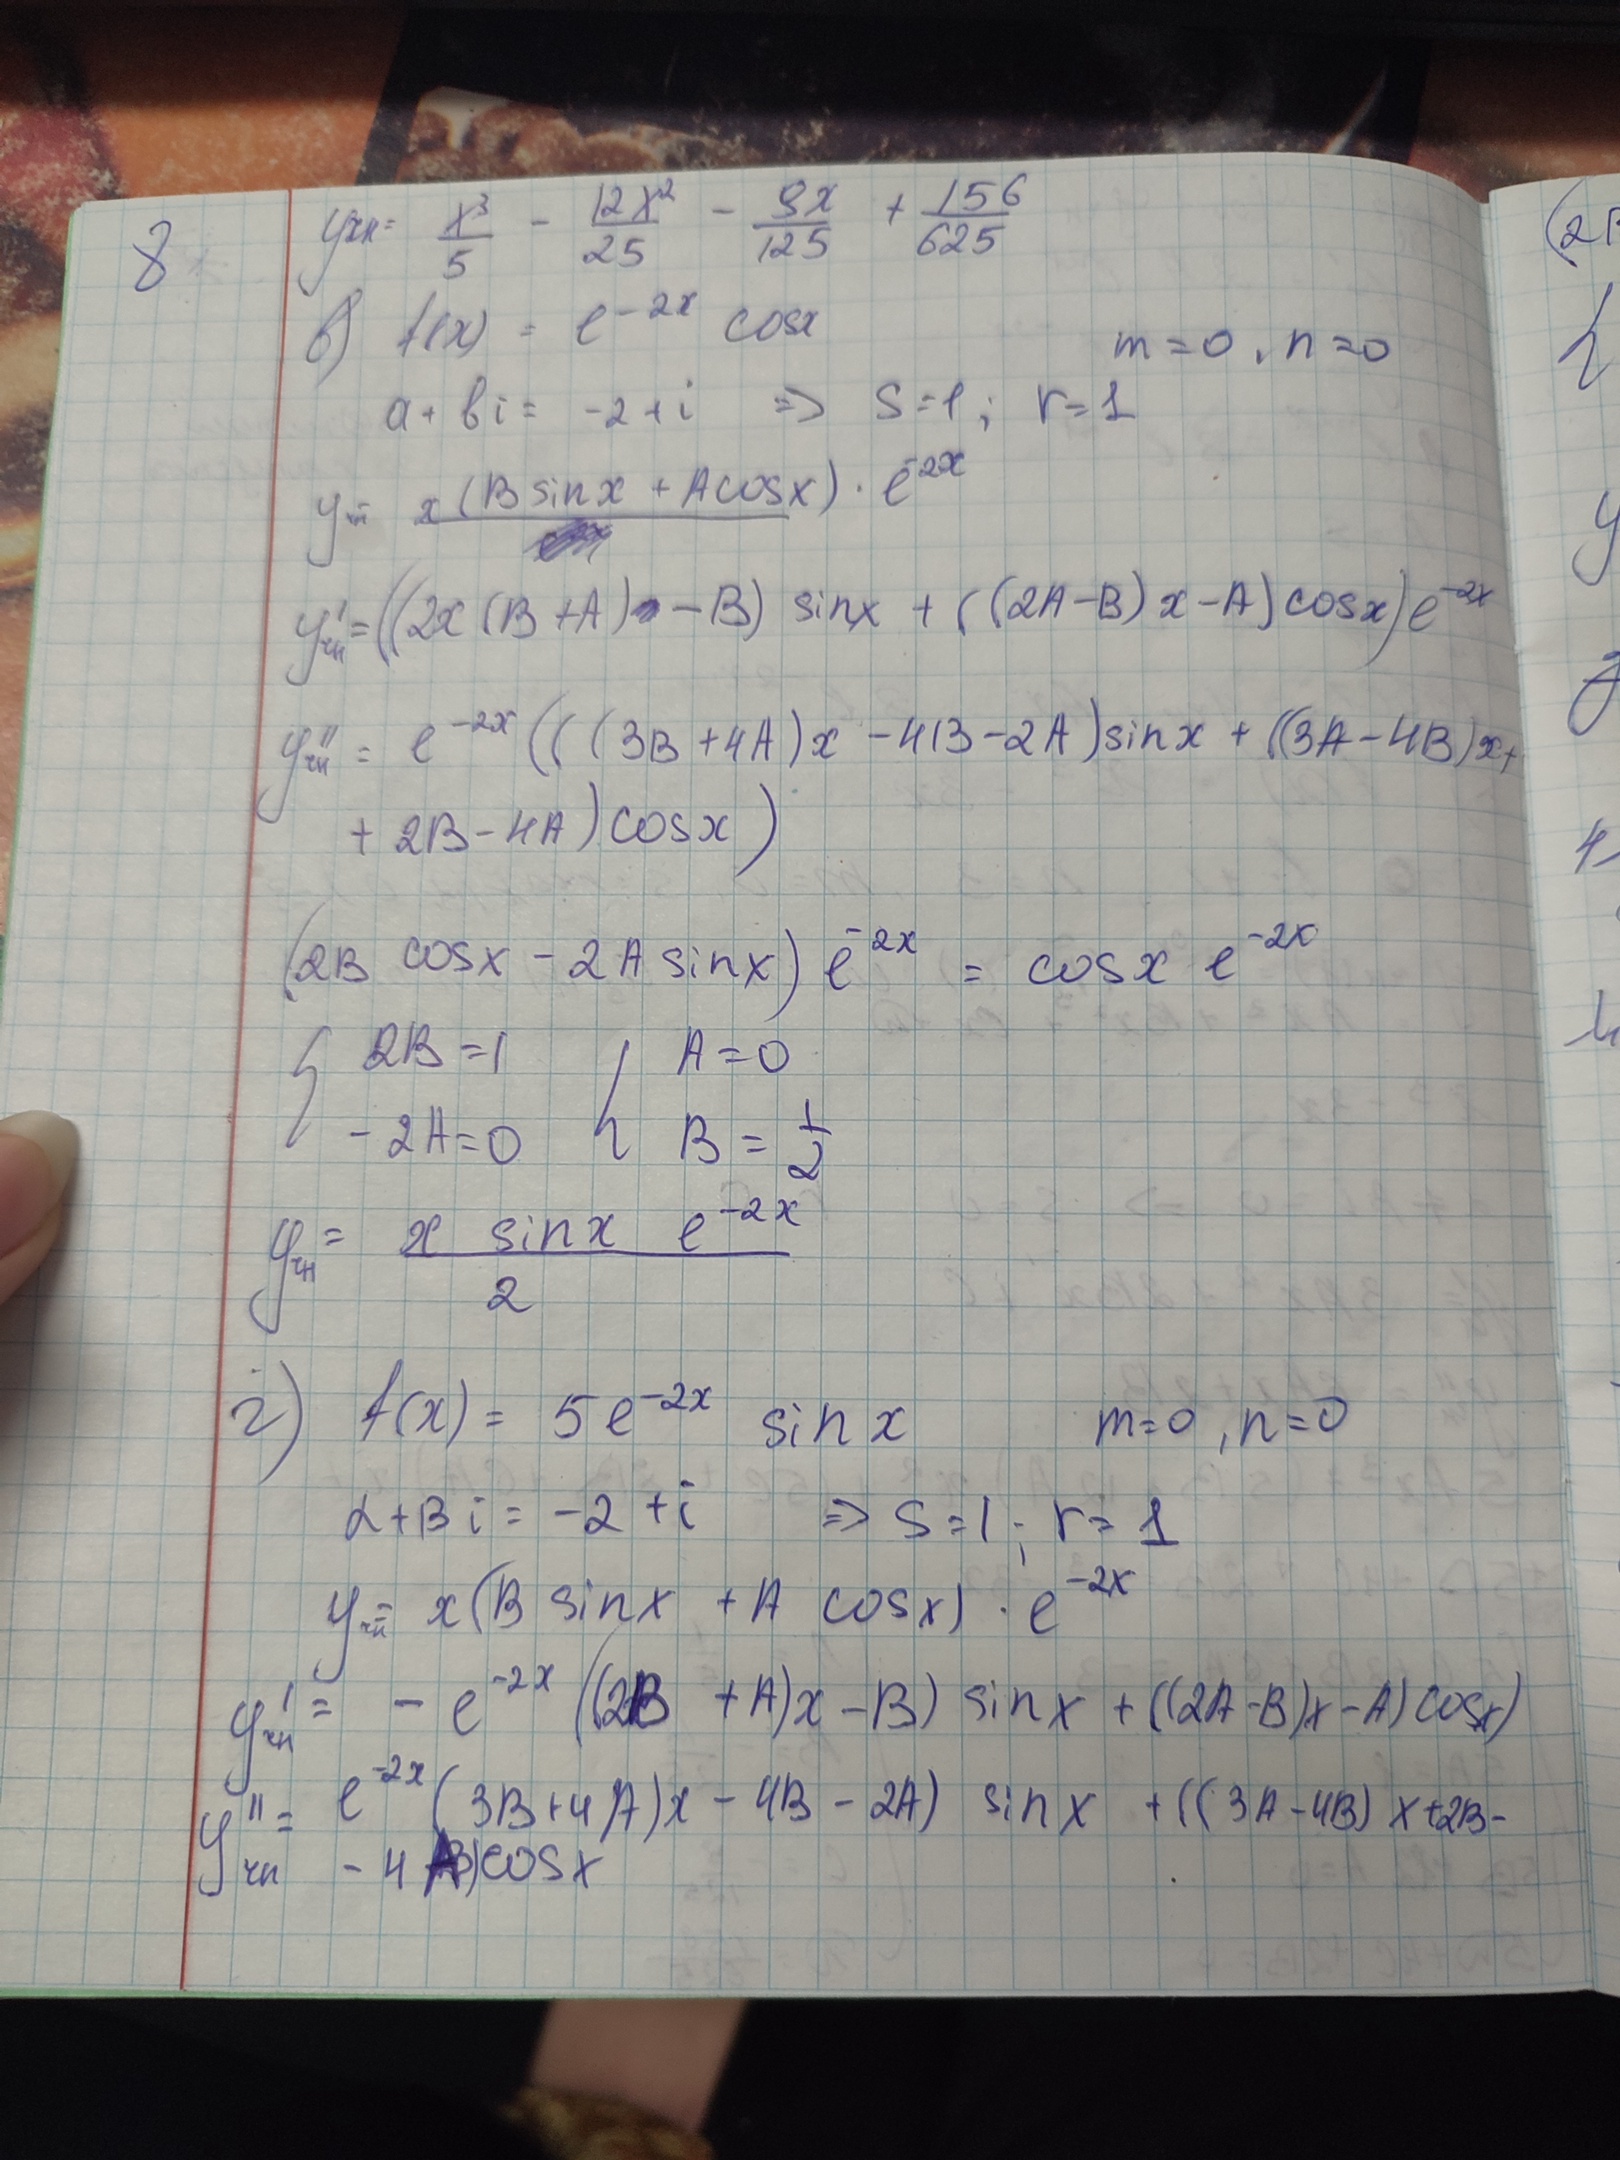 8
yчн = x³/5 - 12x²/25 - 9x/125 + 156/625
в) f(x) = e^(-2x) cosx m=0, n=0
a+bi = -2+i => S=1; r=1
yчн = x(B sinx + A cosx) · e^(-2x)
y'чн = ((2x(B+A) - B) sinx + ((2A-B)x - A) cosx) e^(-2x)
y''чн = e^(-2x) (((3B+4A)x - 4B - 2A) sinx + ((3A-4B)x +
+ 2B - 4A) cosx)
(2B cosx - 2A sinx) e^(-2x) = cosx e^(-2x)
{ 2B=1 { A=0
-2A=0 B = 1/2
yчн = x sinx e^(-2x) / 2
г) f(x) = 5e^(-2x) sinx m=0, n=0
α+Bi = -2+i => S=1; r=1
yчн = x(B sinx + A cosx) · e^(-2x)
y'чн = - e^(-2x) ((2B + A)x - B) sinx + ((2A-B)x - A) cosx)
y''чн = e^(-2x) (3B+4A)x - 4B - 2A) sinx + ((3A-4B) x+2B-
- 4A) cosx
(2B